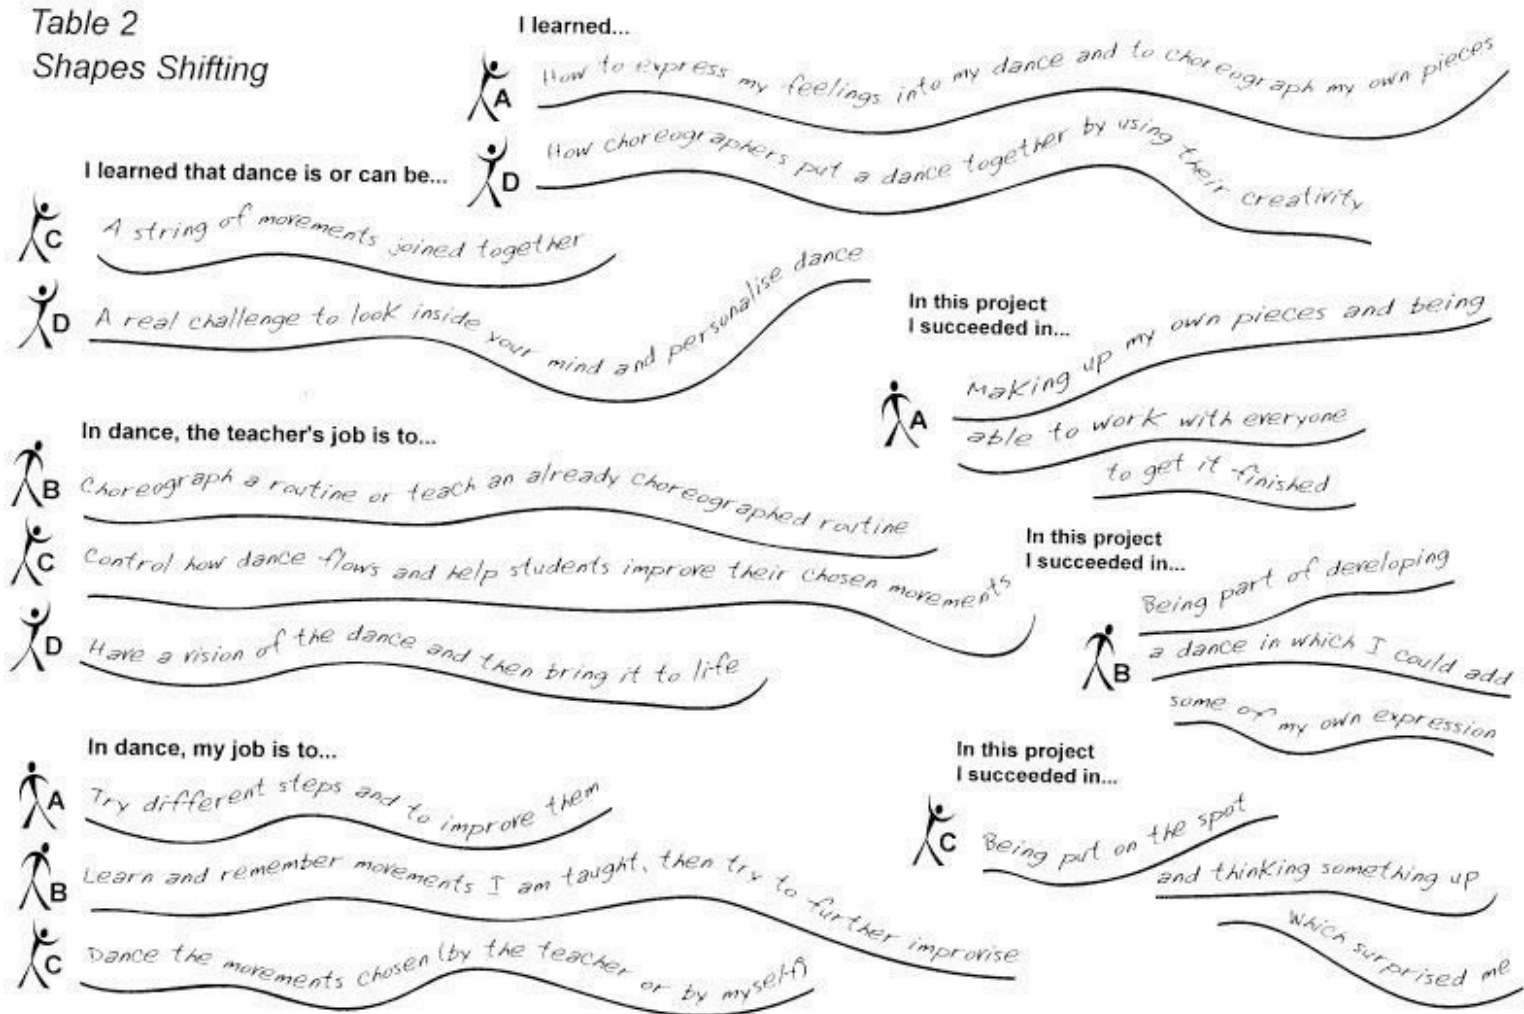 Table 2
Shapes Shifting
I learned...
A How to express my feelings into my dance and to choreograph my own pieces
D How choreographers put a dance together by using their creativity
I learned that dance is or can be...
C A string of movements joined together
D A real challenge to look inside your mind and personalise dance
In dance, the teacher's job is to...
B Choreograph a routine or teach an already choreographed routine
C Control how dance flows and help students improve their chosen movements
D Have a vision of the dance and then bring it to life
In dance, my job is to...
A Try different steps and to improve them
B Learn and remember movements I am taught, then try to further improvise
C Dance the movements chosen (by the teacher or by myself)
In this project
I succeeded in...
A Making up my own pieces and being
able to work with everyone
to get it finished
In this project
I succeeded in...
Being part of developing
B a dance in which I could add
some of my own expression
In this project
I succeeded in...
C Being put on the spot
and thinking something up
which surprised me